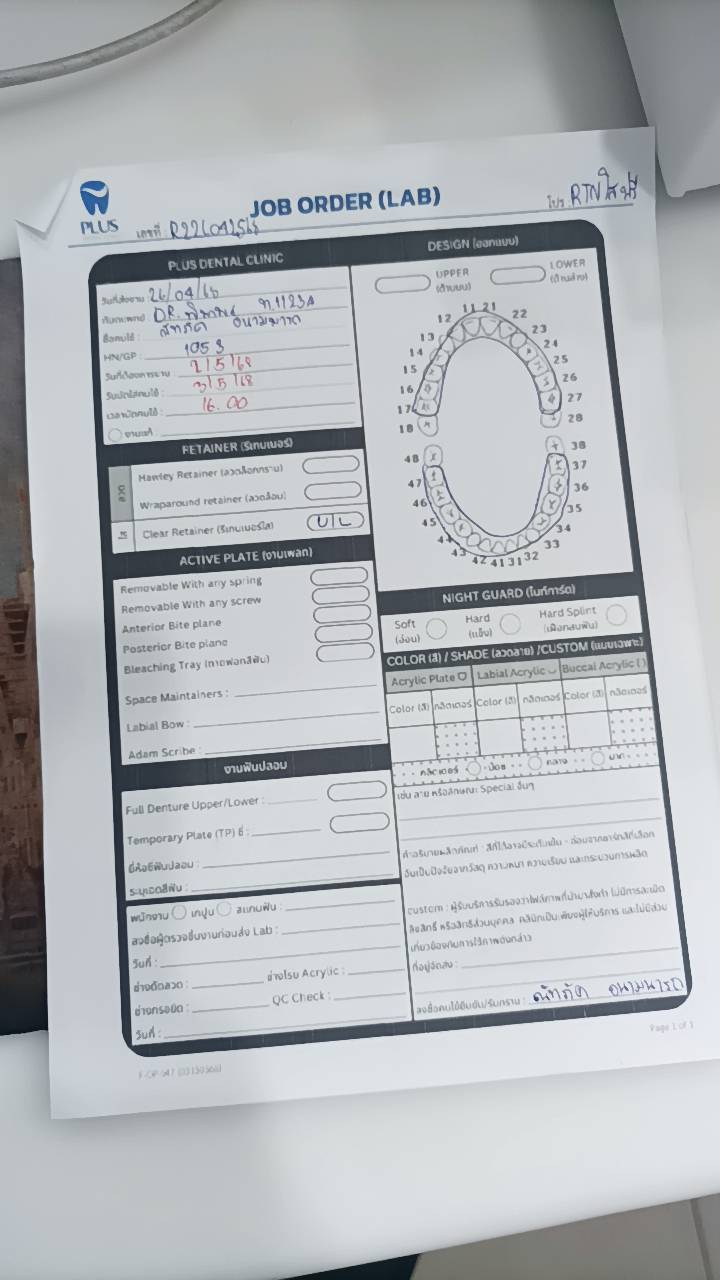 PLUS
JOB ORDER (LAB)
เลขที่ R22604256
โปร. RTN ใส ฟรี
PLUS DENTAL CLINIC
วันที่ส่งงาน 26/04/68
ทันตแพทย์ : DR. ท.11234
ชื่อคนไข้ :
HN/GP : 1053
2/5/68
3/5/68
เวลานัดคนไข้ : 16.00
RETAINER (รีเทนเนอร์)
Hawley Retainer (ลวดล็อกกราม)
Wraparound retainer (ลวดล้อม)
Clear Retainer (รีเทนเนอร์ใส) U/L
ACTIVE PLATE (งานเพลท)
Removable With any spring
Removable With any screw
Anterior Bite plane
Posterior Bite plane
Bleaching Tray (ถาดฟอกสีฟัน)
Space Maintainers :
Labial Bow :
Adam Scribe :
งานฟันปลอม
Full Denture Upper/Lower :
Temporary Plate (TP) ซี่ :
ยี่ห้อซี่ฟันปลอม :
ระบุเฉดสีฟัน :
พนักงาน เทปูน สแกนฟัน :
ลงชื่อผู้ตรวจชิ้นงานก่อนส่ง Lab :
วันที่ :
ช่างดัดลวด : ช่างโรย Acrylic :
ช่างกรอขัด : QC Check :
วันที่ :
DESIGN (ออกแบบ)
UPPER (ด้านบน)
LOWER (ด้านล่าง)
11 21
12 22
13 23
14 24
15 25
16 26
17 27
18 28
48 38
47 37
46 36
45 35
44 34
43 42 41 31 32 33
NIGHT GUARD (ไนท์การ์ด)
Soft (อ่อน)
Hard (แข็ง)
Hard Splint (เฝือกสบฟัน)
COLOR (สี) / SHADE (ลวดลาย) /CUSTOM (แบบเฉพาะ)
Acrylic Plate Labial Acrylic Buccal Acrylic ( )
Color (สี) กลิตเตอร์ Color (สี) กลิตเตอร์ Color (สี) กลิตเตอร์
กลิตเตอร์ น้อย กลาง มาก
เช่น ลาย หรือลักษณะ Special อื่นๆ
คำอธิบายผลิตภัณฑ์ : สีที่ได้อาจมีระดับเข้ม - อ่อนจากชาร์ทสีที่เลือก
อันเป็นปัจจัยจากวัสดุ ความหนา ความเรียบ และกระบวนการผลิต
custom : ผู้รับบริการรับรองว่าไฟล์ภาพที่นำมาสั่งทำ ไม่มีการละเมิด
ลิขสิทธิ์ หรือสิทธิ์ส่วนบุคคล คลินิกเป็นเพียงผู้ให้บริการ และไม่มีส่วน
เกี่ยวข้องกับการใช้ภาพดังกล่าว
ที่อยู่จัดส่ง :
ลงชื่อคนไข้ยืนยัน/รับทราบ :
Page 1 of 1